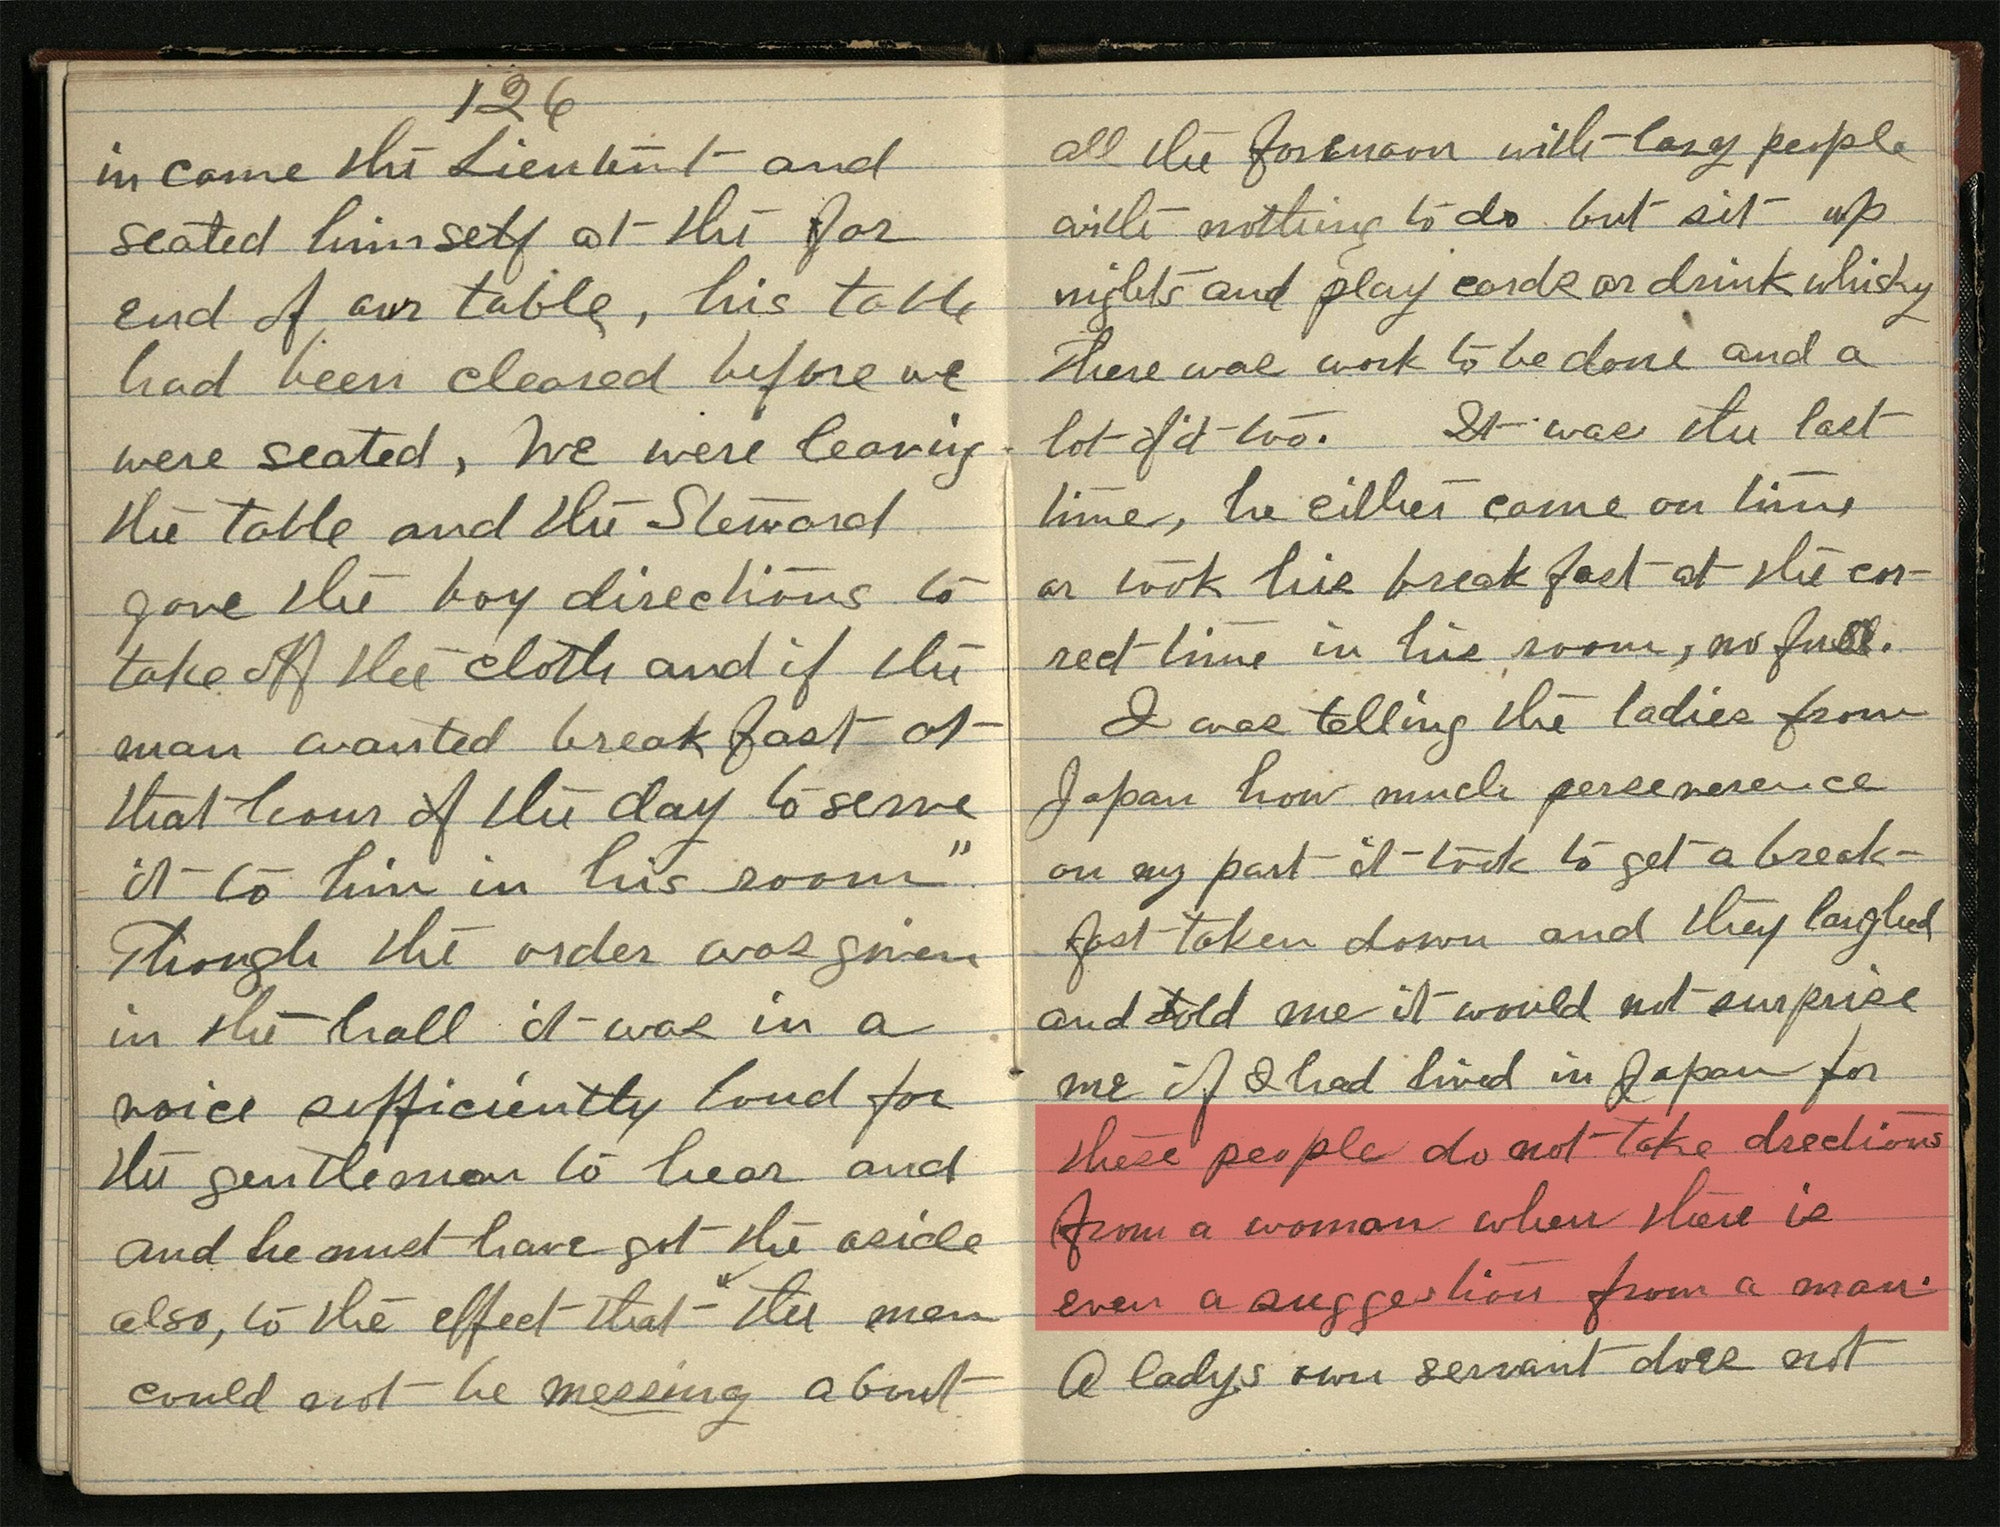 126
in came the Lieutent and
seated himself at the far
end of our table, his table
had been cleared before we
were seated, We were leaving
the table and the Steward
gave the boy directions to
take off the cloth and if the
man wanted breakfast at
that hour of the day to serve
it to him in his room"
Though the order was given
in the hall it was in a
voice sufficiently loud for
the gentleman to hear and
and he must have got the aside
also, to the effect that "the men
could not be messing about
all the forenoon with lazy people
with nothing to do but sit up
nights and play cards or drink whisky
There was work to be done and a
lot of it too. It was the last
time, he either came on time
or took his breakfast at the cor-
rect time in his room, no fuss.
I was telling the ladies from
Japan how much perseverence
on my part it took to get a break-
fast taken down and they laughed
and told me it would not surprise
me if I had lived in Japan for
these people do not take drections
from a woman when there is
even a suggestion from a man.
A ladys own servant does not